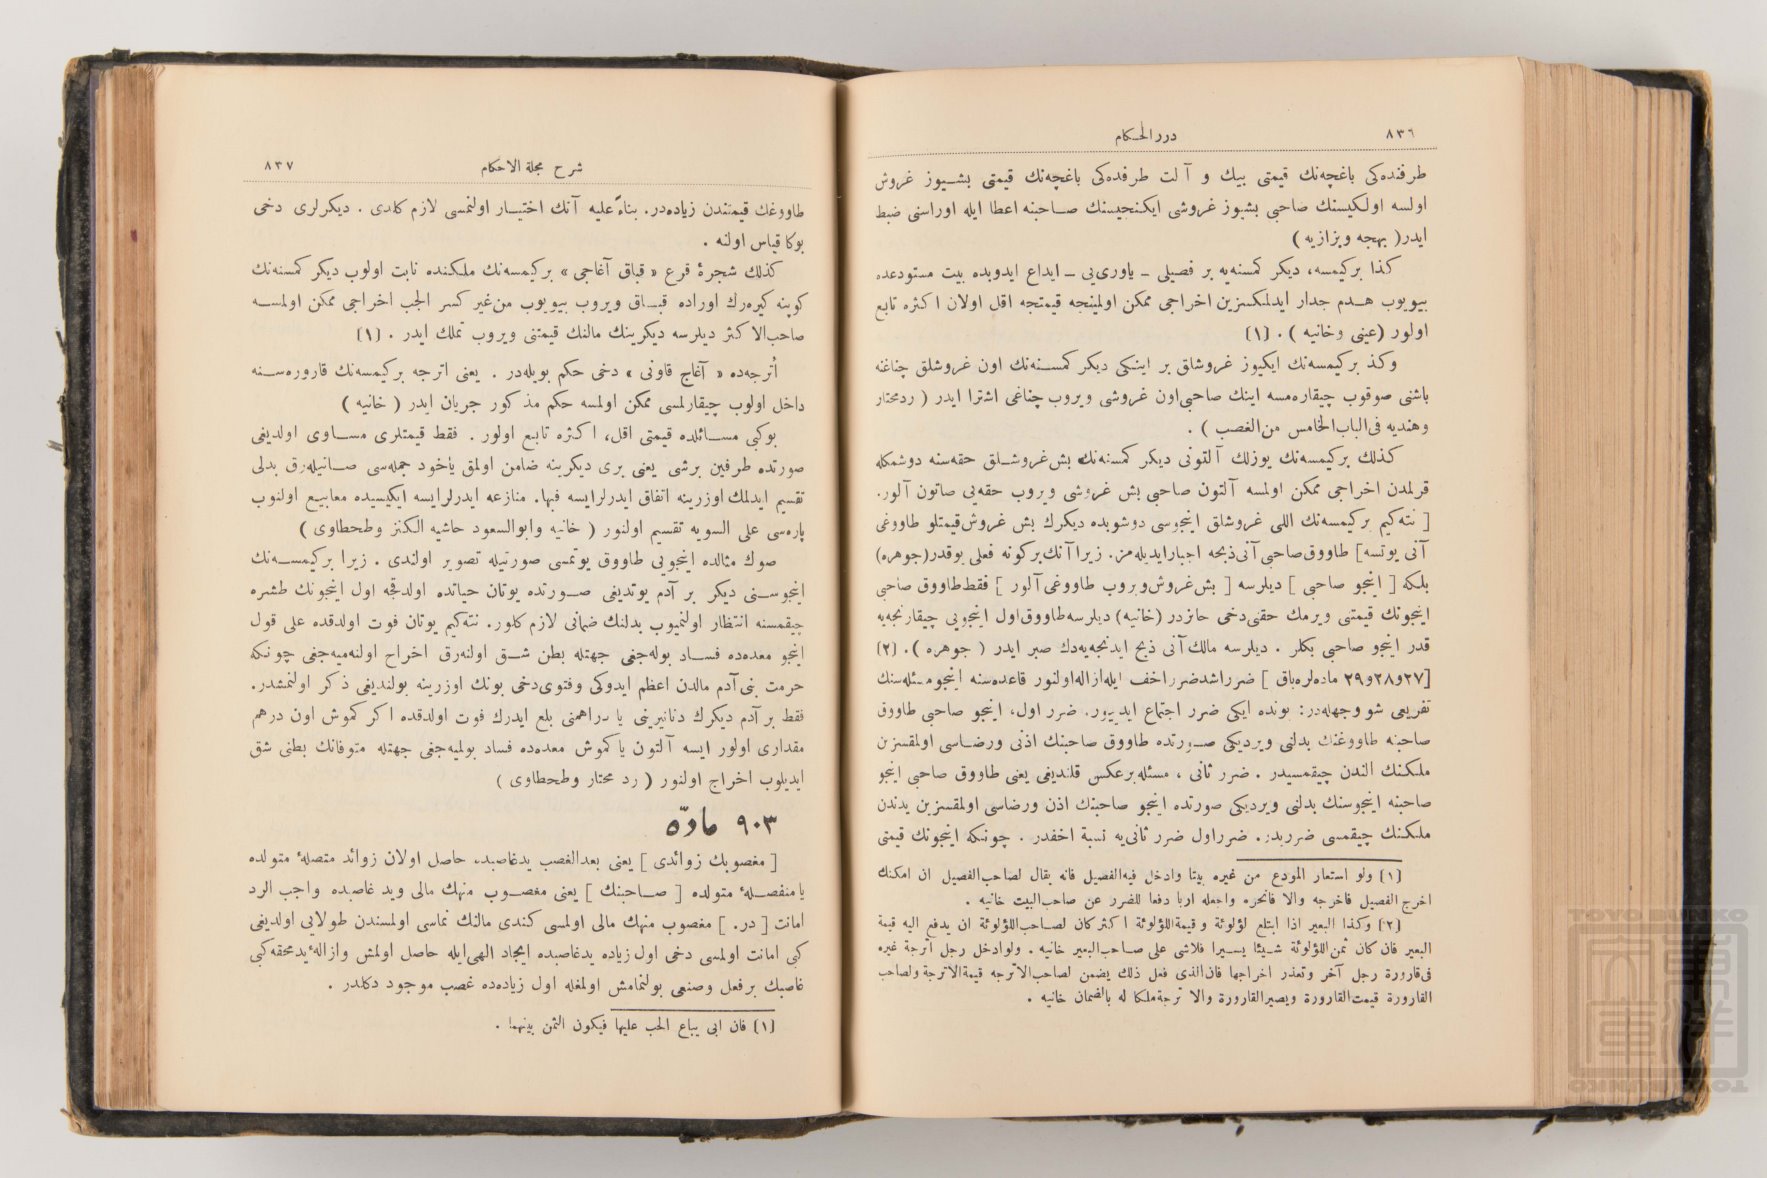 ٨٣٦
درر الحكام
طرفنده‌كی باغچه‌نك قیمتی بیك و آلت طرفده‌كی باغچه‌نك قیمتی بشیوز غروش
اولسه اولكیسنك صاحبی بشیوز غروشی ایكنجیسنك صاحبنه اعطا ایله اوراسنی ضبط
ایدر( بهجه وبزازیه )
كذا بركیمسه، دیكر كمسنه‌یه بر فصیلی ـ یاوری‌یی ـ ایداع ایدوبده بیت مستودعده
بیویوب هدم جدار ایدلمكسزین اخراجی ممكن اولمینجه قیمتجه اقل اولان اكثره تابع
اولور (عینی وخانیه ) . (١)
وكذ بركیمسه‌نك ایكیوز غروشلق بر اینكی دیكر كمسنه‌نك اون غروشلق چناغنه
باشنی صوقوب چیقاره‌مسه اینك صاحبی‌اون غروشی ویروب چناغی اشترا ایدر ( ردمختار
وهندیه فی‌الباب‌الخامس من‌الغصب ) .
كذلك بركیمسه‌نك یوزلك آلتونی دیكر كمسنه‌نك بش‌غروشلق حقه‌سنه دوشمكله
قرلمدن اخراجی ممكن اولمسه آلتون صاحبی بش غروشی ویروب حقه‌یی صاتون آلور.
[ نته‌كیم بركیمسه‌نك اللی غروشلق اینجوسی دوشوبده دیكرك بش غروش‌قیمتلو طاووغی
آنی یوتسه] طاووق‌صاحبی آنی‌ذبحه اجبارایدیله‌من. زیرا آنك‌بركونه فعلی یوقدر(جوهره)
بلكه [ اینجو صاحبی ] دیلرسه [ بش‌غروش‌ویروب طاووغی آلور ] فقط‌طاووق صاحبی
اینجونك قیمتنی ویرمك حقنی‌دخی حائزدر (خانیه) دیلرسه طاووق‌اول اینجویی چیقارنجه‌یه
قدر اینجو صاحبی بكلر . دیلرسه مالك‌آنی ذبح ایدنجه‌یه‌دك صبر ایدر ( جوهره ) . (٢)
[٢٧و٢٨و٢٩ ماده‌لره‌باق ] ضرراشدضرراخف ایله‌ازاله‌اولنور قاعده‌سنه اینجومسئله‌سنك
تفریعی شو وجهله‌در: بونده ایكی ضرر اجتماع ایدییور. ضرر اول، اینجو صاحبی طاووق
صاحبنه طاووغنك بدلنی ویردیكی صورتده طاووق صاحبنك اذنی ورضاسی اولمقسزین
ملكنك الندن چیقمسیدر . ضرر ثانی ، مسئله‌برعكس قلندیغی یعنی طاووق صاحبی اینجو
صاحبنه اینجوسنك بدلنی ویردیكی صورتده اینجو صاحبنك اذن ورضاسی اولمقسزین یدندن
ملكنك چیقمسی ضرریدر. ضرراول ضرر ثانی‌یه نسبة اخفدر . چونكه اینجونك قیمتی
(١) ولو استعار المودع من غیره بیتا وادخل فیه‌الفصیل فانه یقال لصاحب‌الفصیل ان امكنك
اخرج الفصیل فاخرجه والا فانحره واجعله اربا دفعا للضرر عن صاحب‌البیت خانیه .
(٢) وكذا البعیر اذا ابتلع لؤلوئة وقیمة‌اللؤلوئة اكثركان لصاحب‌اللؤلوئة ان یدفع الیه قیمة
البعیر فان كان ثمن‌اللؤلوئة شیئا یسیرا فلاشی علی صاحب‌البعیر خانیه . ولوادخل رجل أترجة غیره
فی‌قارورة رجل آخر وتعذر اخراجها فان‌الذی فعل ذلك یضمن لصاحب‌الاترجه قیمة‌الاترجة ولصاحب
القارورة قیمت‌القارورة ویصیرالقارورة والا ترجة‌ملكا له بالضمان خانیه .
شرح مجلة الاحكام
٨٣٧
طاووغك قیمتندن زیاده‌در. بناءً علیه آنك اختیار اولنمسی لازم كلدی . دیكرلری دخی
بوكا قیاس اولنه .
كذلك شجرۀ قرع « قباق آغاجی » بركیمسه‌نك ملكنده نابت اولوب دیكر كمسنه‌نك
كوپنه كیره‌رك اوراده قباق ویروب بیویوب من‌غیر كسر الجب اخراجی ممكن اولمسه
صاحب‌الاكثر دیلرسه دیكرینك مالنك قیمتنی ویروب تملك ایدر . (١)
اُترجه‌ده « آغاج قاونی » دخی حكم بویله‌در . یعنی اترجه بركیمسه‌نك قاروره‌سنه
داخل اولوب چیقارلمسی ممكن اولمسه حكم مذكور جریان ایدر ( خانیه )
بوكبی مسائلده قیمتی اقل، اكثره تابع اولور . فقط قیمتلری مساوی اولدیغی
صورتده طرفین برشی یعنی بری دیكرینه ضامن اولمق یاخود جمله‌سی صاتیله‌رق بدلی
تقسیم ایدلمك اوزرینه اتفاق ایدرلرایسه فبها. منازعه ایدرلرایسه ایكیسیده معابیع اولنوب
پاره‌سی علی السویه تقسیم اولنور ( خانیه وابوالسعود حاشیه الكنز وطحطاوی )
صوك مثالده اینجویی طاووق یوتمسی صورتیله تصویر اولندی . زیرا بركیمسه‌نك
اینجوسنی دیكر بر آدم یوتدیغی صورتده یوتان حیاتده اولدقجه اول اینجونك طشره
چیقمسنه انتظار اولنمیوب بدلنك ضمانی لازم كلور. نته‌كیم یوتان فوت اولدقده علی قول
اینجو معده‌ده فساد بوله‌جغی جهتله بطن شق اولنه‌رق اخراج اولنه‌میه‌جغی چونكه
حرمت بنی‌آدم مالدن اعظم ایدوكی وفتوی‌دخی بونك اوزرینه بولندیغی ذكر اولنمشدر.
فقط بر آدم دیكرك دنانیرینی یا دراهمنی بلع ایدرك فوت اولدقده اكر كموش اون درهم
مقداری اولور ایسه آلتون یاكموش معده‌ده فساد بولمیه‌جغی جهتله متوفانك بطنی شق
ایدیلوب اخراج اولنور ( رد محتار وطحطاوی )
٩٠٣ مادّه
[ مغصوبك زوائدی ] یعنی بعدالغصب یدغاصبده حاصل اولان زوائد متصلۀ متولده
یامنفصلۀ متولده [ صاحبنك ] یعنی مغصوب منهك مالی وید غاصبده واجب الرد
امانت [ در. ] مغصوب منهك مالی اولمسی كندی مالنك نماسی اولمسندن طولایی اولدیغی
كبی امانت اولمسی دخی اول زیاده یدغاصبده ایجاد الهی‌ایله حاصل اولمش وازالۀ‌یدمحقه‌كبی
غاصبك برفعل وصنعی بولنمامش اولمغله اول زیاده‌ده غصب موجود دكلدر .
(١) فان ابی یباع الحب علیها فیكون الثمن بینهما .
TOYO BUNKO